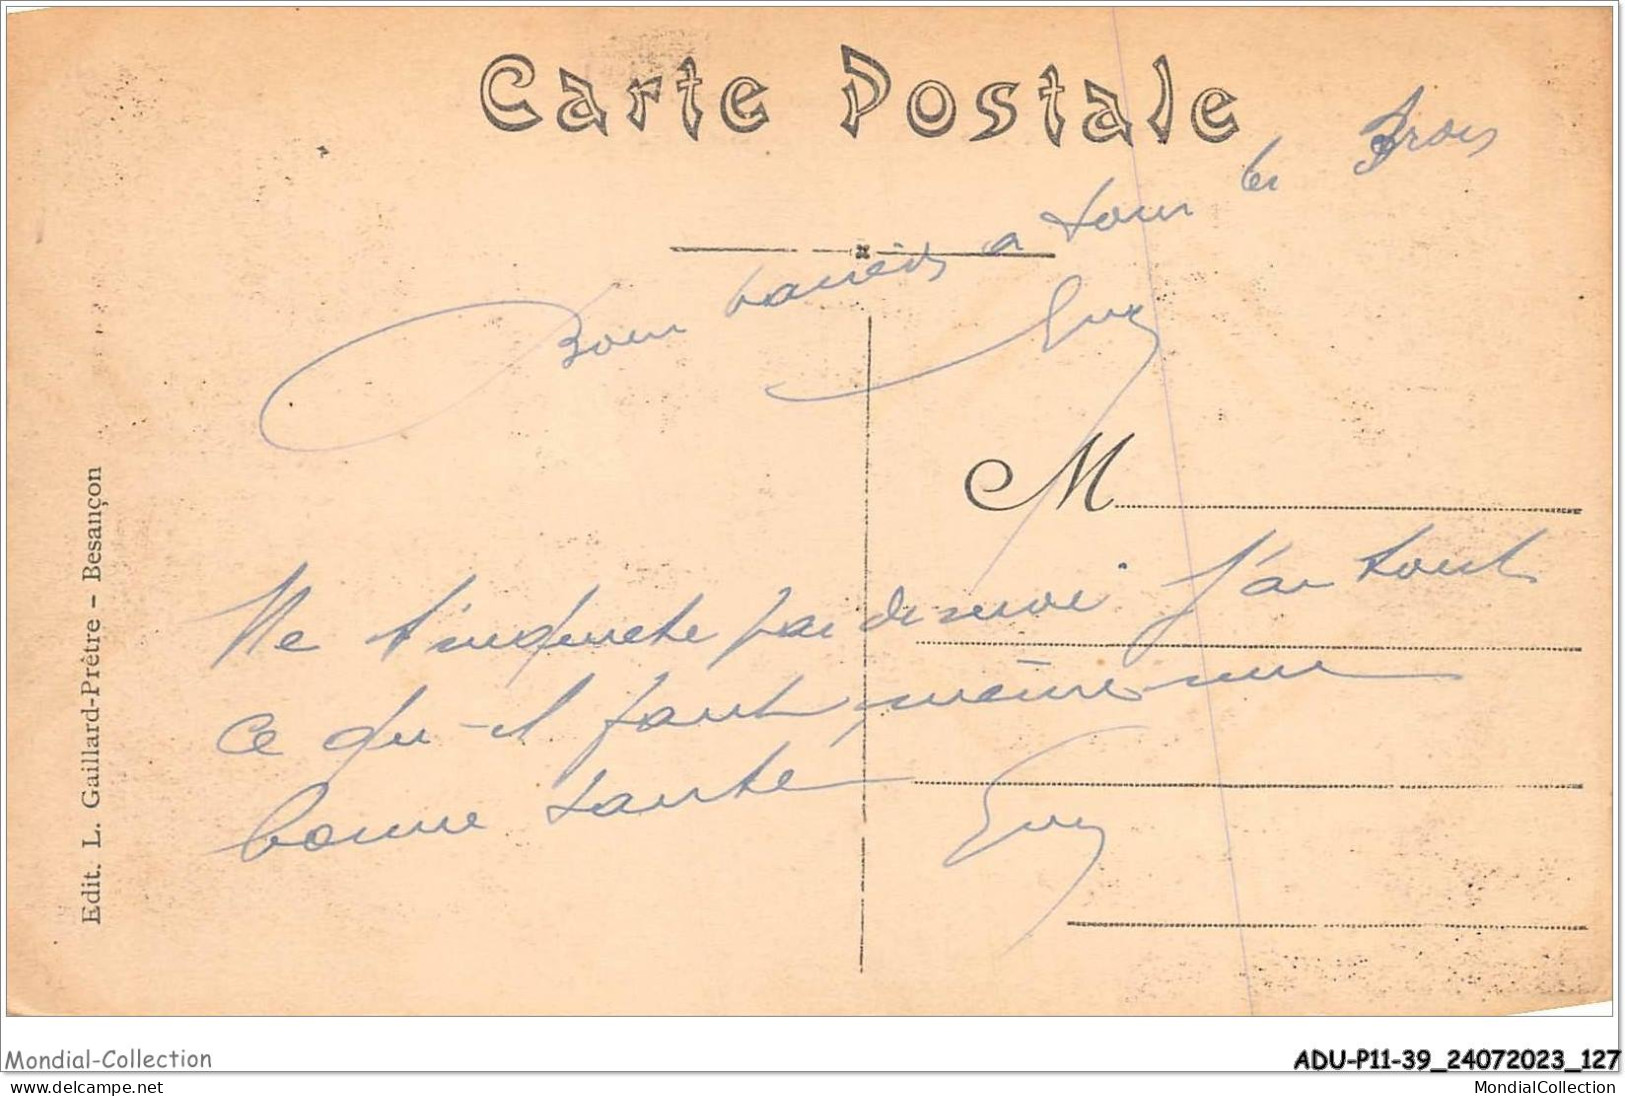 Carte Postale
Bons baisers a tous les Trois
Guy
M
Ne t'inquiete pas de moi j'ai tout
ce qu-il faut, même une
bonne santé
Guy
Edit. L. Gaillard-Prêtre - Besançon
Mondial-Collection
ADU-P11-39_24072023_127
www.delcampe.net
MondialCollection